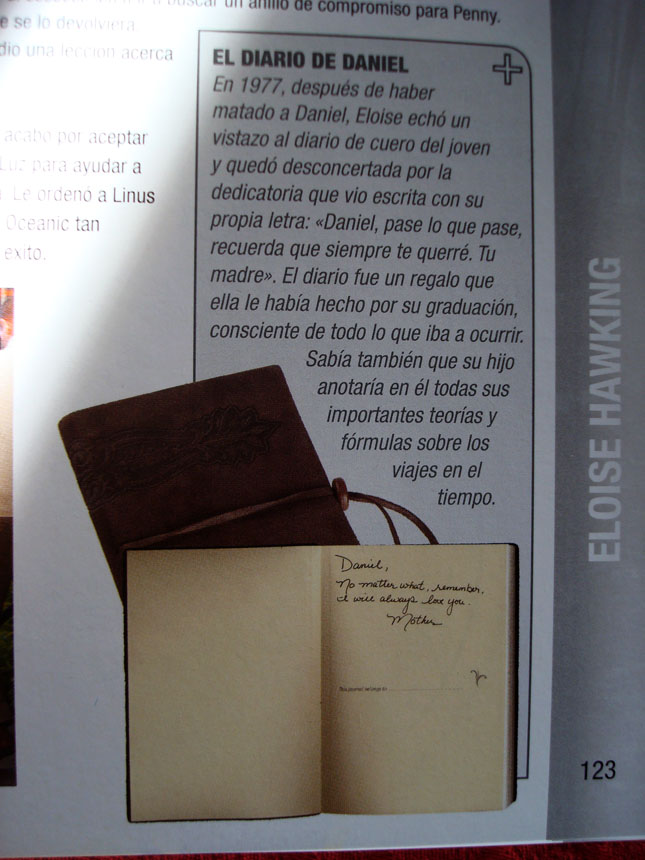 buscar un anillo de compromiso para Penny.
e se lo devolviera.
dio una lección acerca
acabó por aceptar
Luz para ayudar a
Le ordenó a Linus
Oceanic tan
éxito.
EL DIARIO DE DANIEL
En 1977, después de haber
matado a Daniel, Eloise echó un
vistazo al diario de cuero del joven
y quedó desconcertada por la
dedicatoria que vio escrita con su
propia letra: «Daniel, pase lo que pase,
recuerda que siempre te querré. Tu
madre». El diario fue un regalo que
ella le había hecho por su graduación,
consciente de todo lo que iba a ocurrir.
Sabía también que su hijo
anotaría en él todas sus
importantes teorías y
fórmulas sobre los
viajes en el
tiempo.
Daniel,
No matter what, remember,
I will always love you.
Mother
This journal belongs to
ELOISE HAWKING
123